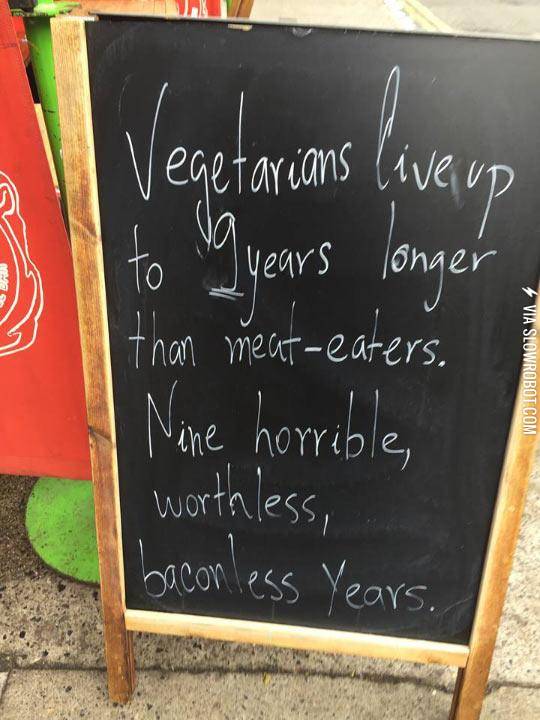 Vegetarians live up
to 9 years longer
than meat-eaters.
Nine horrible,
worthless,
baconless Years.
VIA SLOWROBOT.COM